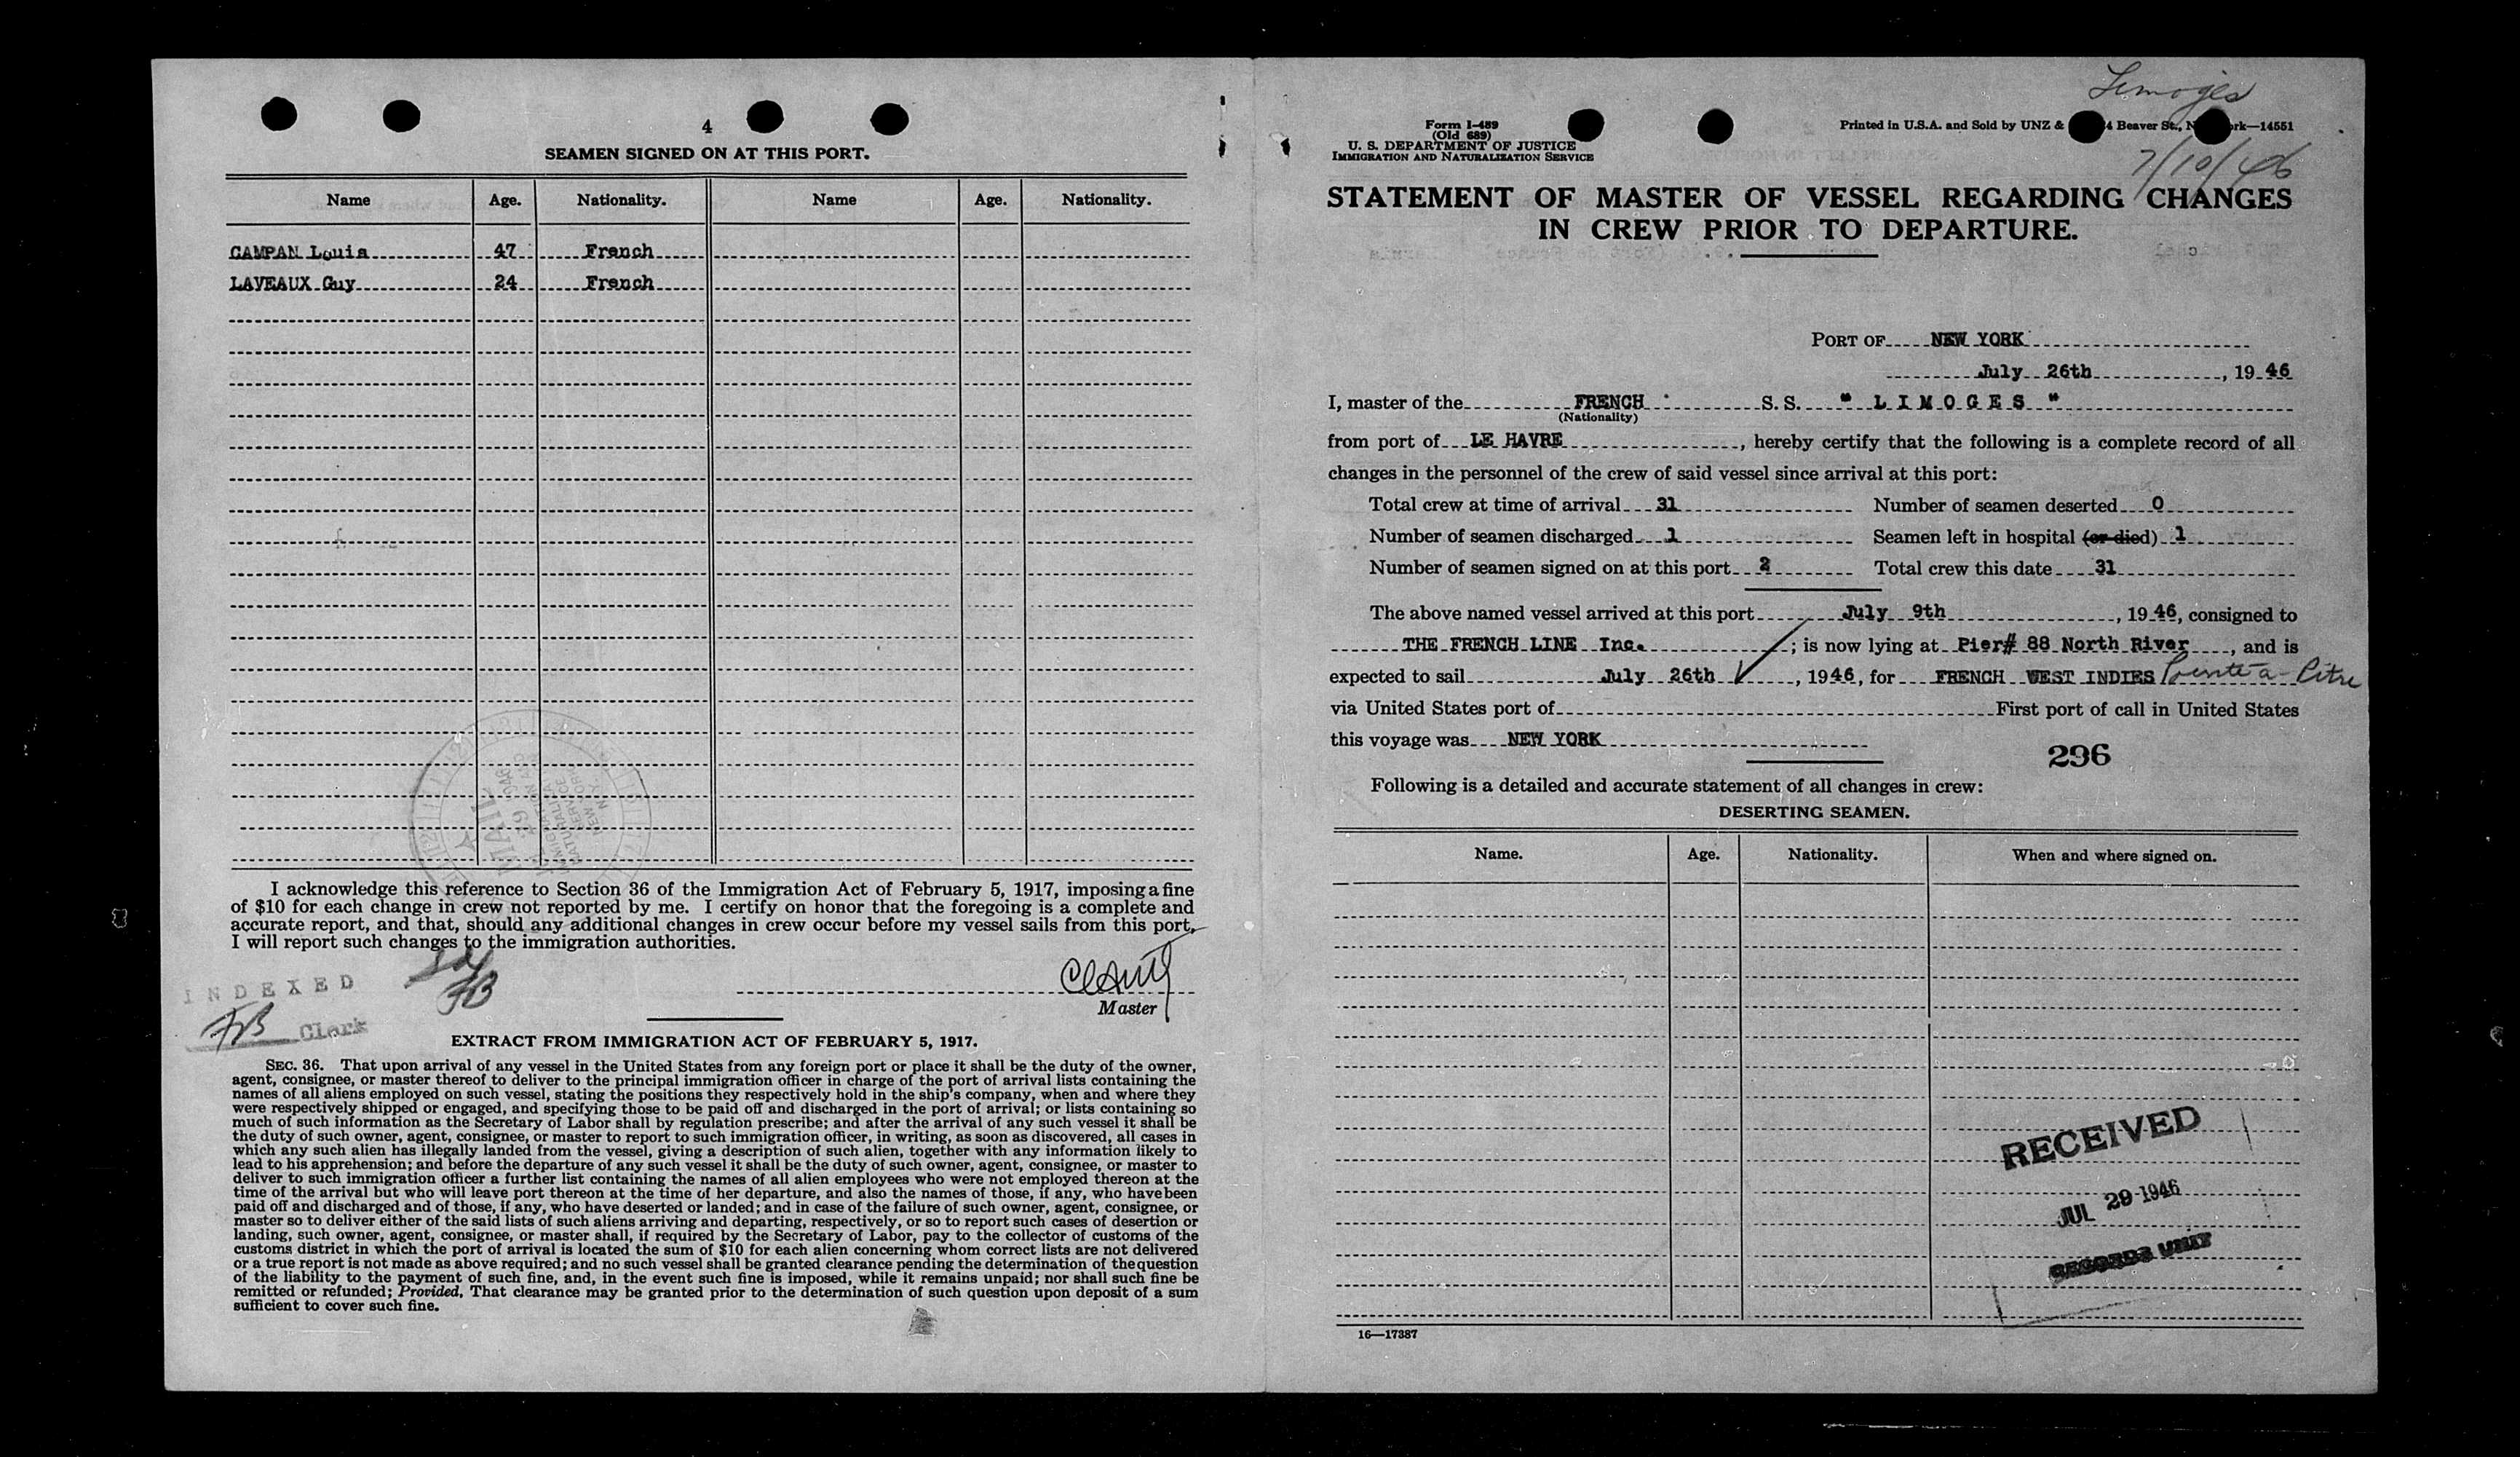 4
SEAMEN SIGNED ON AT THIS PORT.
Name Age. Nationality. Name Age. Nationality.
CAMPAN Louis 47 French
LAVEAUX Guy 24 French
I acknowledge this reference to Section 36 of the Immigration Act of February 5, 1917, imposing a fine
of $10 for each change in crew not reported by me. I certify on honor that the foregoing is a complete and
accurate report, and that, should any additional changes in crew occur before my vessel sails from this port,
I will report such changes to the immigration authorities.
INDEXED
FB Clerk
FB
Master
EXTRACT FROM IMMIGRATION ACT OF FEBRUARY 5, 1917.
SEC. 36. That upon arrival of any vessel in the United States from any foreign port or place it shall be the duty of the owner,
agent, consignee, or master thereof to deliver to the principal immigration officer in charge of the port of arrival lists containing the
names of all aliens employed on such vessel, stating the positions they respectively hold in the ship's company, when and where they
were respectively shipped or engaged, and specifying those to be paid off and discharged in the port of arrival; or lists containing so
much of such information as the Secretary of Labor shall by regulation prescribe; and after the arrival of any such vessel it shall be
the duty of such owner, agent, consignee, or master to report to such immigration officer, in writing, as soon as discovered, all cases in
which any such alien has illegally landed from the vessel, giving a description of such alien, together with any information likely to
lead to his apprehension; and before the departure of any such vessel it shall be the duty of such owner, agent, consignee, or master to
deliver to such immigration officer a further list containing the names of all alien employees who were not employed thereon at the
time of the arrival but who will leave port thereon at the time of her departure, and also the names of those, if any, who have been
paid off and discharged and of those, if any, who have deserted or landed; and in case of the failure of such owner, agent, consignee, or
master so to deliver either of the said lists of such aliens arriving and departing, respectively, or so to report such cases of desertion or
landing, such owner, agent, consignee, or master shall, if required by the Secretary of Labor, pay to the collector of customs of the
customs district in which the port of arrival is located the sum of $10 for each alien concerning whom correct lists are not delivered
or a true report is not made as above required; and no such vessel shall be granted clearance pending the determination of the question
of the liability to the payment of such fine, and, in the event such fine is imposed, while it remains unpaid; nor shall such fine be
remitted or refunded; Provided, That clearance may be granted prior to the determination of such question upon deposit of a sum
sufficient to cover such fine.
Limoges
7/10/46
Form I-489
(Old 689)
U. S. DEPARTMENT OF JUSTICE
IMMIGRATION AND NATURALIZATION SERVICE
Printed in U.S.A. and Sold by UNZ & 4 Beaver St., N rk—14551
STATEMENT OF MASTER OF VESSEL REGARDING CHANGES
IN CREW PRIOR TO DEPARTURE.
PORT OF NEW YORK
July 26th, 1946
I, master of the FRENCH S. S. " L I M O G E S "
(Nationality)
from port of LE HAVRE, hereby certify that the following is a complete record of all
changes in the personnel of the crew of said vessel since arrival at this port:
Total crew at time of arrival 31 Number of seamen deserted 0
Number of seamen discharged 1 Seamen left in hospital (or died) 1
Number of seamen signed on at this port 2 Total crew this date 31
The above named vessel arrived at this port July 9th, 1946, consigned to
THE FRENCH LINE Inc.; is now lying at Pier# 88 North River, and is
expected to sail July 26th, 1946, for FRENCH WEST INDIES Pointe-à-Pitre
via United States port of First port of call in United States
this voyage was NEW YORK
296
Following is a detailed and accurate statement of all changes in crew:
DESERTING SEAMEN.
Name. Age. Nationality. When and where signed on.
RECEIVED
JUL 29 1946
RECORDS UNIT
16—17387